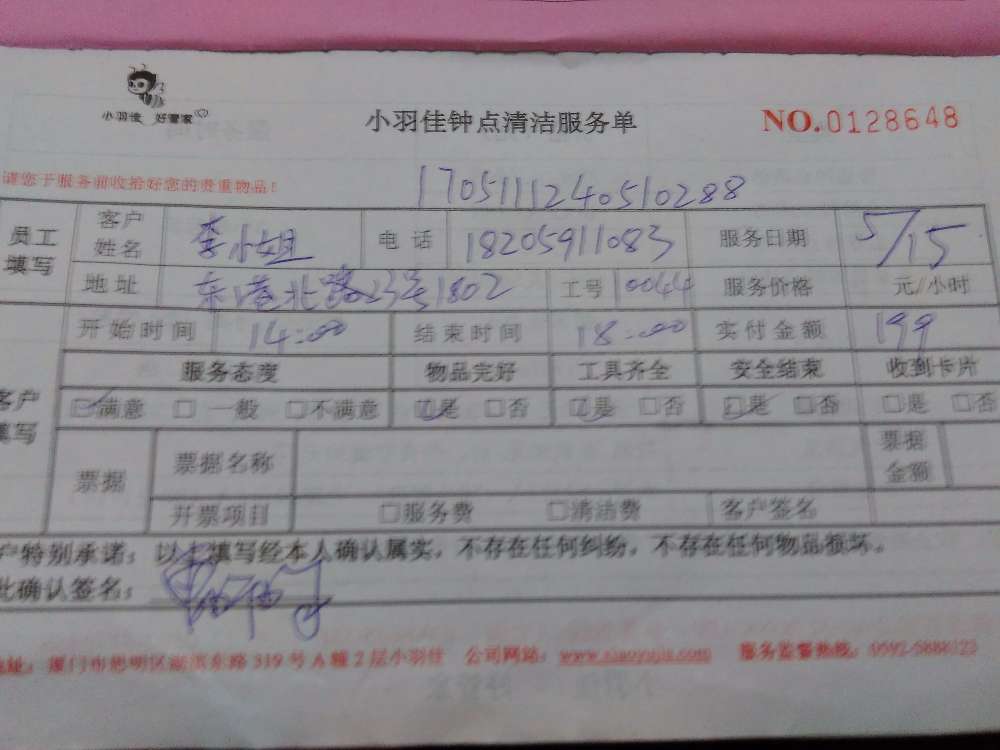 小羽佳 好管家
小羽佳钟点清洁服务单 NO.0128648
请您于服务前收拾好您的贵重物品！
1705111240510288
员工填写 客户姓名 李小姐 电话 18205911083 服务日期 5/15
地址 东港北路23号1802 工号 10044 服务价格 元/小时
开始时间 14:00 结束时间 18:00 实付金额 199
客户填写 服务态度 物品完好 工具齐全 安全结束 收到卡片
☑满意 □一般 □不满意 ☑是 □否 ☑是 □否 ☑是 □否 □是 □否
票据 票据名称 票据金额
开票项目 □服务费 □清洁费 客户签名
户特别承诺：以上填写经本人确认属实，不存在任何纠纷，不存在任何物品损坏。
此确认签名：
地址：厦门市思明区 东路319号A幢2层小羽佳 公司网站： 服务监督热线：